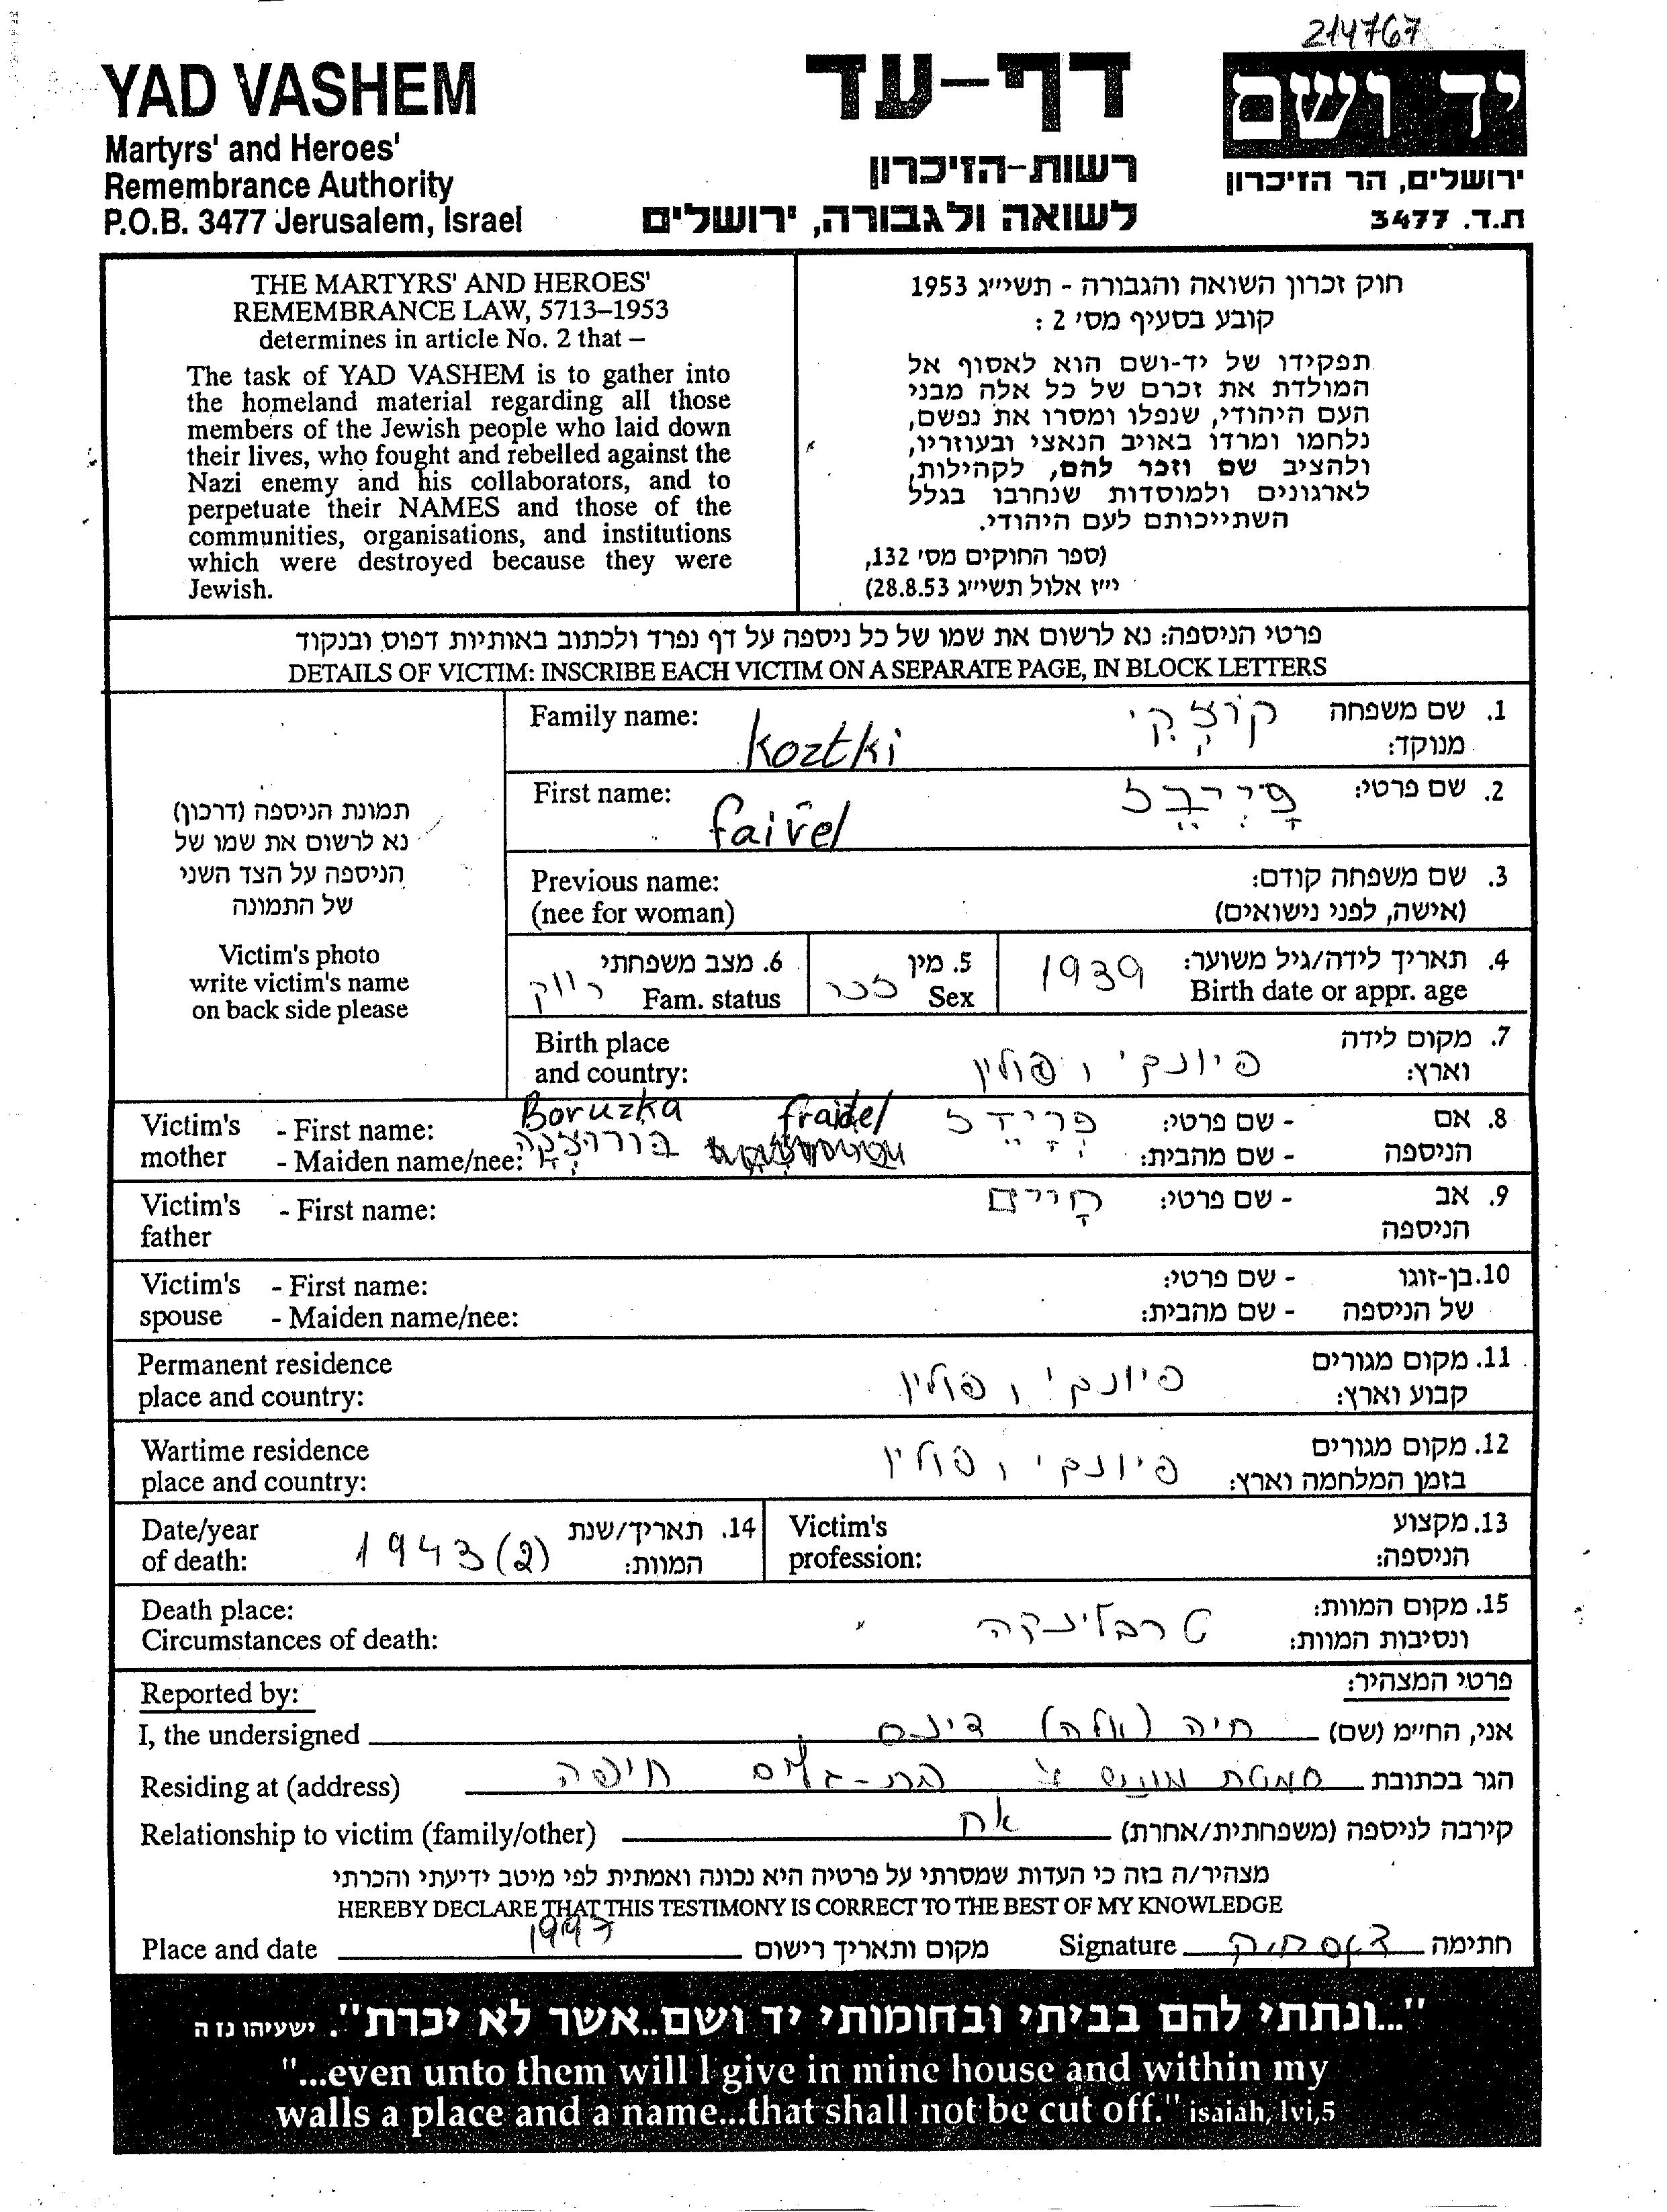 214767
YAD VASHEM
Martyrs' and Heroes'
Remembrance Authority
P.O.B. 3477 Jerusalem, Israel
דף-עד
רשות-הזיכרון
לשואה ולגבורה, ירושלים
יד ושם
ירושלים, הר הזיכרון
ת.ד. 3477
THE MARTYRS' AND HEROES'
REMEMBRANCE LAW, 5713–1953
determines in article No. 2 that –
The task of YAD VASHEM is to gather into
the homeland material regarding all those
members of the Jewish people who laid down
their lives, who fought and rebelled against the
Nazi enemy and his collaborators, and to
perpetuate their NAMES and those of the
communities, organisations, and institutions
which were destroyed because they were
Jewish.
חוק זכרון השואה והגבורה - תשי״ג 1953
קובע בסעיף מס׳ 2 :
תפקידו של יד-ושם הוא לאסוף אל
המולדת את זכרם של כל אלה מבני
העם היהודי, שנפלו ומסרו את נפשם,
נלחמו ומרדו באויב הנאצי ובעוזריו,
ולהציב שם וזכר להם, לקהילות,
לארגונים ולמוסדות שנחרבו בגלל
השתייכותם לעם היהודי.
(ספר החוקים מס׳ 132,
י״ז אלול תשי״ג 28.8.53)
פרטי הניספה: נא לרשום את שמו של כל ניספה על דף נפרד ולכתוב באותיות דפוס ובנקוד
DETAILS OF VICTIM: INSCRIBE EACH VICTIM ON A SEPARATE PAGE, IN BLOCK LETTERS
תמונת הניספה (דרכון)
נא לרשום את שמו של
הניספה על הצד השני
של התמונה
Victim's photo
write victim's name
on back side please
Family name: koztki קוֹצְקִי 1. שם משפחה
מנוקד:
First name: faivel פַיְבֵל 2. שם פרטי:
Previous name: 3. שם משפחה קודם:
(nee for woman) (אישה, לפני נישואים)
6. מצב משפחתי 5. מין 4. תאריך לידה/גיל משוער:
רווק Fam. status זכר Sex 1939 Birth date or appr. age
Birth place 7. מקום לידה
and country: פיונקי, פולין וארץ:
Victim's - First name: Boruzka fraidel פְרַיְידֵל - שם פרטי: 8. אם
mother - Maiden name/nee: בורוצקה - שם מהבית: הניספה
Victim's - First name: חָיים - שם פרטי: 9. אב
father הניספה
Victim's - First name: - שם פרטי: 10. בן-זוגו
spouse - Maiden name/nee: - שם מהבית: של הניספה
Permanent residence 11. מקום מגורים
place and country: פיונקי, פולין קבוע וארץ:
Wartime residence 12. מקום מגורים
place and country: פיונקי, פולין בזמן המלחמה וארץ:
Date/year 14. תאריך/שנת Victim's 13. מקצוע
of death: 1943 (2) המוות: profession: הניספה:
Death place: 15. מקום המוות:
Circumstances of death: טרבלינקה ונסיבות המוות:
Reported by: פרטי המצהיר:
I, the undersigned חיה (אלה) דינס אני, החי״מ (שם)
Residing at (address) סמטת בת-גלים חיפה הגר בכתובת
Relationship to victim (family/other) אח קירבה לניספה (משפחתית/אחרת)
מצהיר/ה בזה כי העדות שמסרתי על פרטיה היא נכונה ואמתית לפי מיטב ידיעתי והכרתי
HEREBY DECLARE THAT THIS TESTIMONY IS CORRECT TO THE BEST OF MY KNOWLEDGE
Place and date 1997 מקום ותאריך רישום Signature חתימה
"...ונתתי להם בביתי ובחומותי יד ושם..אשר לא יכרת". ישעיהו נז ה
"...even unto them will I give in mine house and within my
walls a place and a name...that shall not be cut off." isaiah, lvi,5